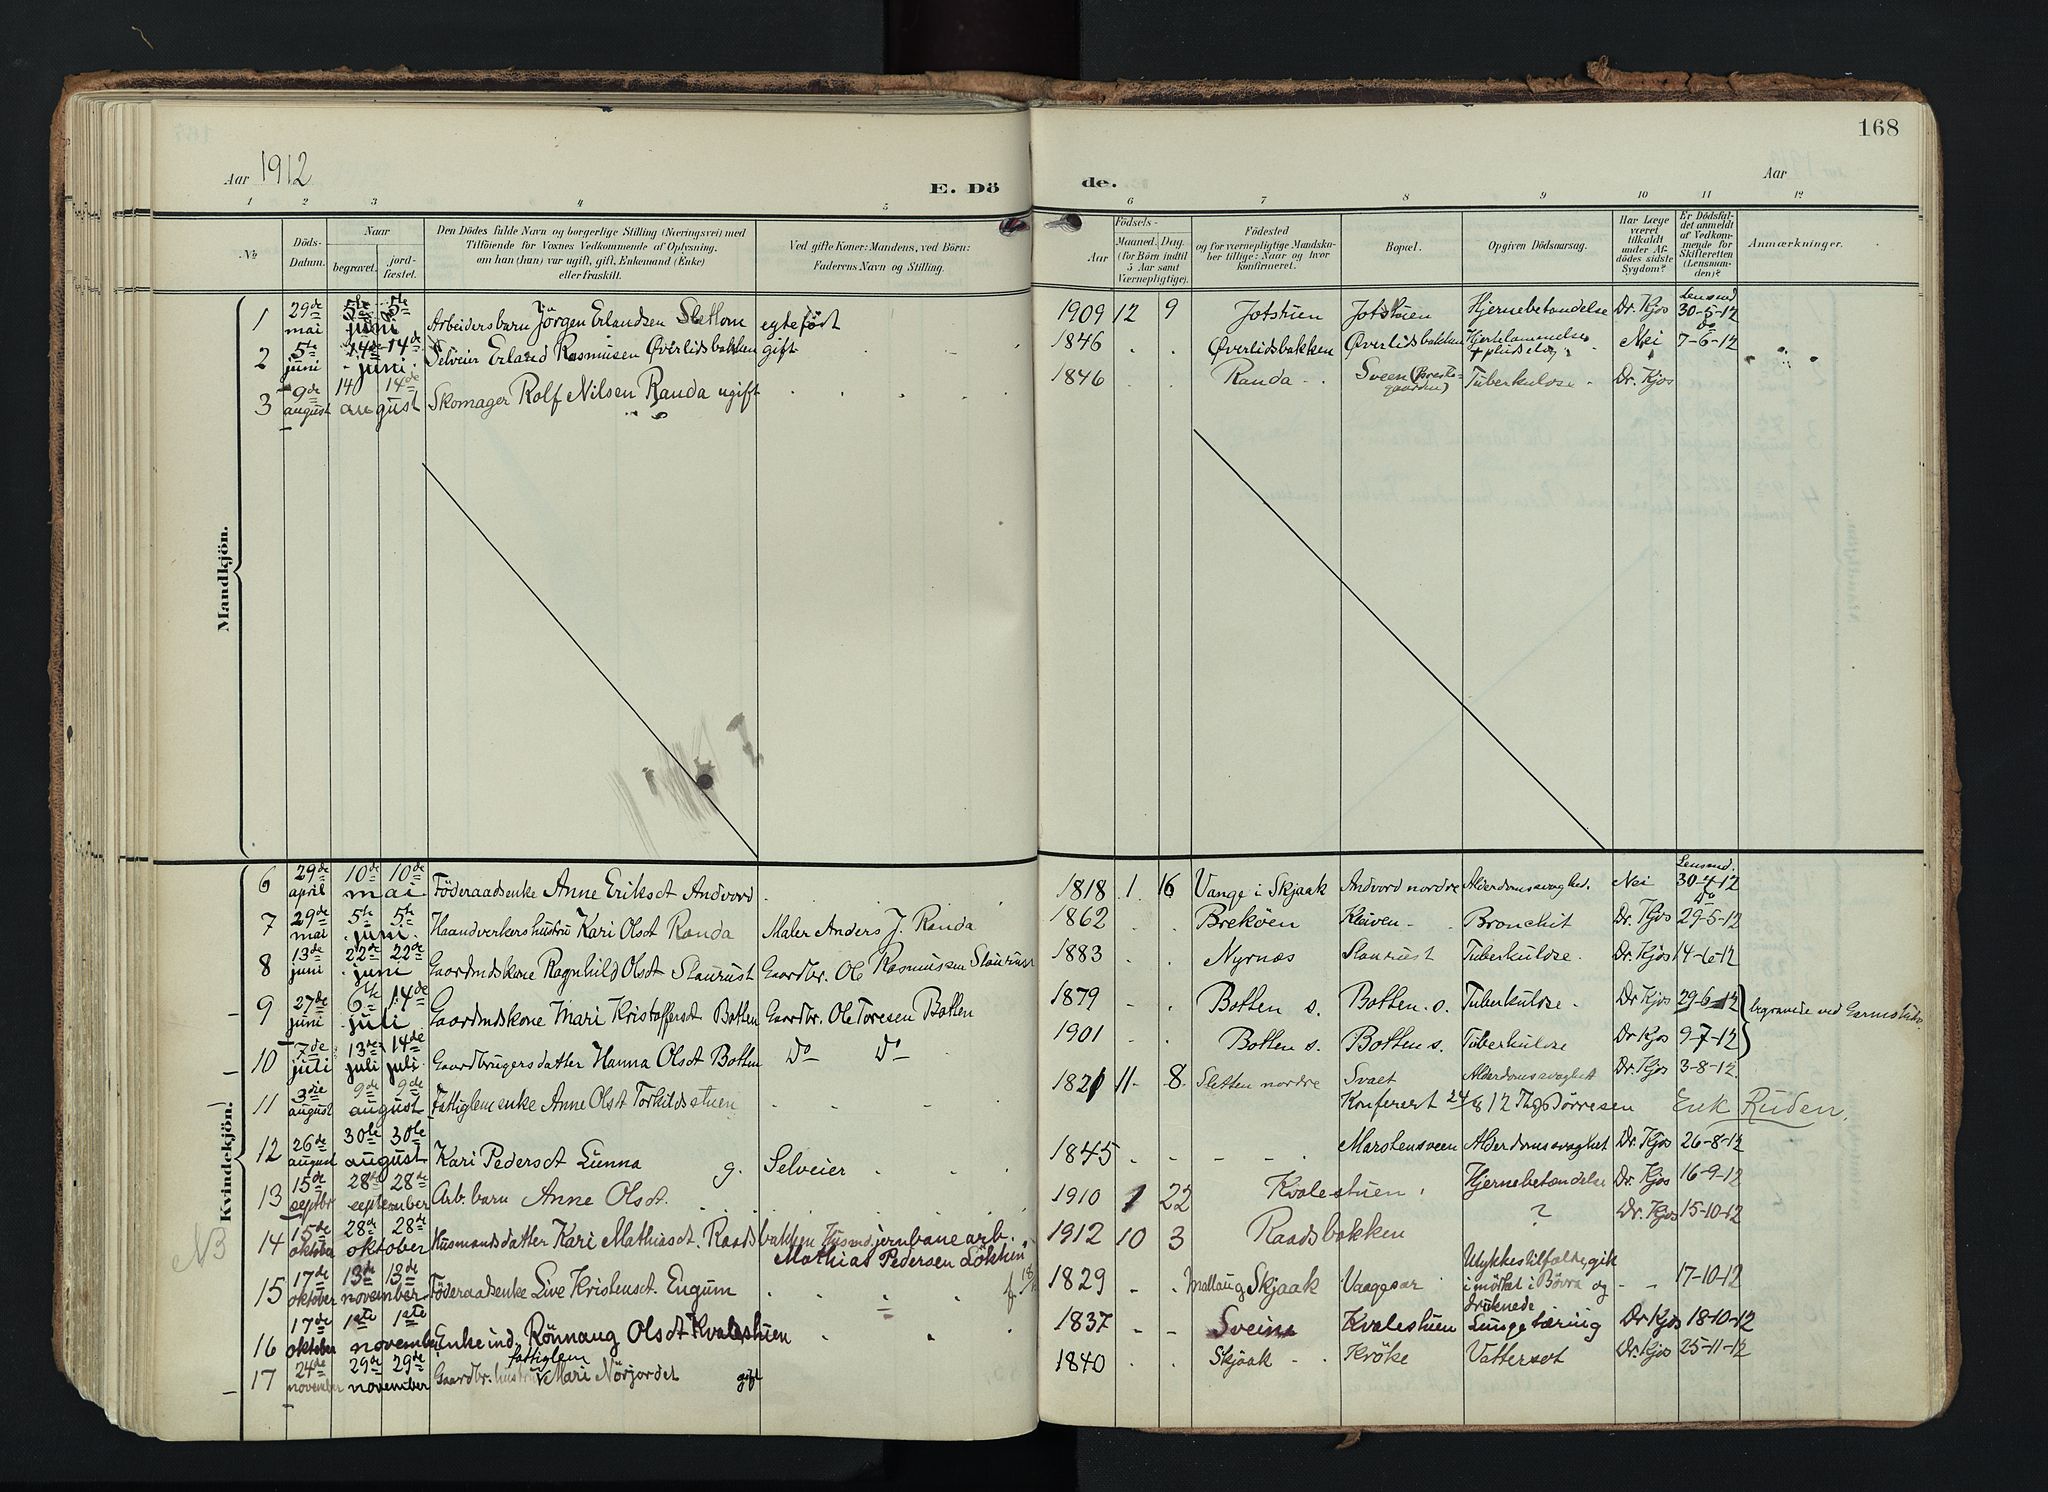 168
Aar 1912
E. Dö
de.
Aar
1 2 3 4 5 6 7 8 9 10 11 12
No
Döds-Datum.
Naar
begravet.
jord-fæstet.
Den Dödes fulde Navn og borgerlige Stilling (Næringsvei) med
Tilföiende for Voxnes Vedkommende af Oplysning,
om han (hun) var ugift, gift, Enkemand (Enke)
eller fraskilt.
Ved gifte Koner: Mandens, ved Börn:
Faderens Navn og Stilling.
Födsels-
Aar
Maaned. Dag.
(for Börn indtil
5 Aar samt
Værnepligtige).
Födested
og for værnepligtige Mandska-
ber tillige: Naar og hvor
konfirmeret.
Bopæl.
Opgiven Dödsaarsag.
Har Læge
været
tilkaldt
under Af-
dödes sidste
Sygdom?
Er Dödsfal-
det anmeldt
af Vedkom-
mende for
Skifteretten
(Lensman-
den)?
Anmærkninger.
Mandkjön.
1 29de mai 5te 5te juni Arbeidersbarn Jörgen Erlandsen Slettom egtefödt 1909 12 9 Jotstuen Jotstuen Hjernebetændelse Dr. Kjos Lensmd. 30-5-12
2 5te juni 14de 14de juni Selveier Erland Rasmusen Øverlidsbakken gift 1846 Øverlidsbakken Øverlidsbakken Nei do 7-6-12
3 9de august 14 14de august Skomager Rolf Nilsen Randa ugift 1846 Randa Sveen (Preste-gaarden) Tuberkulose Dr. Kjos
Kvindekjön.
6 29de april 10de 10de mai Föderaadsenke Anne Eriksdt Andvord 1818 1 16 Vange i Skjaak Andvord nordre Alderdomssvaghed. Nei Lensmd. 30-4-12
7 29de mai 5te 5te juni. Haandverkershustru Kari Olsdt Randa Maler Anders J. Randa 1862 Breköen Kleiven Bronchit Dr. Kjos do 29-5-12
8 13de juni 22de 22de juni Gaardmdskone Ragnhild Olsdt Staurust Gaardbr. Ole Rasmusen Staurust 1883 Nyrnæs Staurust Tuberkulose. Dr. Kjos 14-6-12
9 27de juni 6te 14de juli Gaardmdskone Mari Kristoffersdt Botten Gaardbr. Ole Toresen Botten 1879 Botten s. Botten s. Tuberkulose Dr Kjos 29-6-12 begravede ved Garmo kirke
10 7de juli 13de juli 14de juli. Gaardbrugersdatter Hanna Olsdt Botten Do Do 1901 Botten s. Botten s. Tuberkulose Dr Kjos 9-7-12
11 3die august 9de 9de august Fattiglem enke Anne Olsdt Torkildstuen 1821 11 8 Sletten nordre Svaet Alderdomssvaghet Dr. Kjos 3-8-12.
Konferert 24/8 12 Th. Dörresen Erik Ruden.
12 26de august 30te 30te august Kari Pedersdt Lunna g. Selveier 1845 Marstensveen Alderdomssvaghet Dr. Kjos 26-8-12
13 15de septbr 28de 28de september Arb. barn Anne Olsdt. 1910 1 22 Kvalestuen Hjernebetændelse Dr. Kjos 16-9-12
NB 14 15de oktober 28de 28de oktober Husmandsdatter Kari Mathiasdt. Raadsbakken Husmd. jernbanearb. Mathias Pedersen Lökken 1912 10 3 Raadsbakken ? Dr. Kjos 15-10-12
15 17de oktober 13de 13de november Föderaadsenke Live Kristensdt. Engum f. 1829 Mallaug Skjaak Vaagesar Ulykkestilfælde, gik i mörket i Bövra og druknede 17-10-12
16 17de oktober 1ste 1ste november Enke ind. Rönnaug Olsdt Kvalestuen 1837 Sveine Kvalestuen Lungetæring Dr Kjos 18-10-12
fattiglem
17 24de november 29de 29de november Gaardbr. hustru Mari Nörjordet gift 1840 Skjaak Kröke Vattersot Dr. Kjos 25-11-12